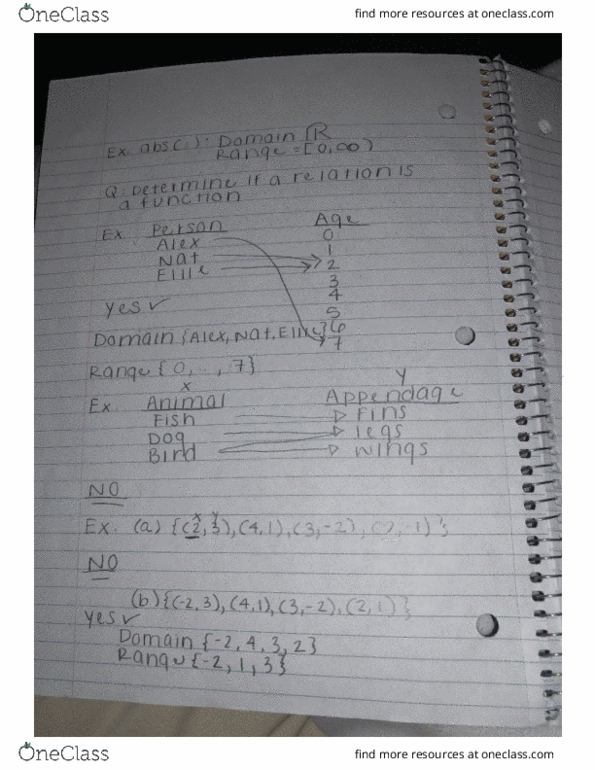 OneClass
find more resources at oneclass.com
Ex. abs( ): Domain ℝ
Range = [0,∞)
Q: Determine if a relation is
a function
Ex. Person Age
Alex 0
Nat 1
Ellie 2
3
4
yes ✓ 5
Domain {Alex, Nat, Ellie} 6
7
Range {0,..,7}
x y
Ex. Animal Appendage
Fish Fins
Dog legs
Bird wings
NO
x y
Ex. (a) {(2,3),(4,1),(3,-2),(2,-1)}
NO
(b) {(-2,3),(4,1),(3,-2),(2,1)}
yes ✓
Domain {-2,4,3,2}
Range {-2,1,3}
OneClass
find more resources at oneclass.com